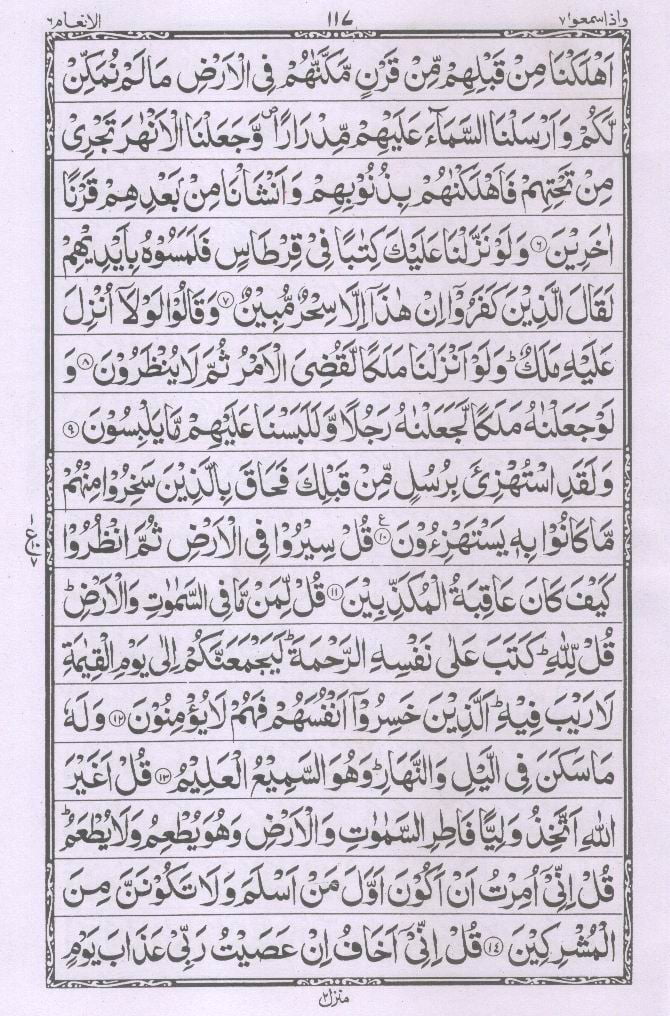 الانعام ٦ ١١٧ واذا سمعوا ٧
اَهْلَكْنَا مِنْ قَبْلِهِمْ مِّنْ قَرْنٍ مَّكَّنّٰهُمْ فِی الْاَرْضِ مَا لَمْ نُمَكِّنْ
لَّكُمْ وَاَرْسَلْنَا السَّمَآءَ عَلَیْهِمْ مِّدْرَارًا ۪ وَّجَعَلْنَا الْاَنْهٰرَ تَجْرِیْ
مِنْ تَحْتِهِمْ فَاَهْلَكْنٰهُمْ بِذُنُوْبِهِمْ وَاَنْشَاْنَا مِنْ بَعْدِهِمْ قَرْنًا
اٰخَرِیْنَ ﴿٦﴾ وَلَوْ نَزَّلْنَا عَلَیْكَ كِتٰبًا فِیْ قِرْطَاسٍ فَلَمَسُوْهُ بِاَیْدِیْهِمْ
لَقَالَ الَّذِیْنَ كَفَرُوْۤا اِنْ هٰذَاۤ اِلَّا سِحْرٌ مُّبِیْنٌ ﴿٧﴾ وَقَالُوْا لَوْلَاۤ اُنْزِلَ
عَلَیْهِ مَلَكٌ ؕ وَلَوْ اَنْزَلْنَا مَلَكًا لَّقُضِیَ الْاَمْرُ ثُمَّ لَا یُنْظَرُوْنَ ﴿٨﴾ وَ
لَوْ جَعَلْنٰهُ مَلَكًا لَّجَعَلْنٰهُ رَجُلًا وَّلَلَبَسْنَا عَلَیْهِمْ مَّا یَلْبِسُوْنَ ﴿٩﴾
وَلَقَدِ اسْتُهْزِئَ بِرُسُلٍ مِّنْ قَبْلِكَ فَحَاقَ بِالَّذِیْنَ سَخِرُوْا مِنْهُمْ
مَّا كَانُوْا بِهٖ یَسْتَهْزِءُوْنَ ﴿١٠﴾ ع قُلْ سِیْرُوْا فِی الْاَرْضِ ثُمَّ انْظُرُوْا
كَیْفَ كَانَ عَاقِبَةُ الْمُكَذِّبِیْنَ ﴿١١﴾ قُلْ لِّمَنْ مَّا فِی السَّمٰوٰتِ وَالْاَرْضِ ؕ
قُلْ لِّلّٰهِ ؕ كَتَبَ عَلٰی نَفْسِهِ الرَّحْمَةَ ؕ لَیَجْمَعَنَّكُمْ اِلٰی یَوْمِ الْقِیٰمَةِ
لَا رَیْبَ فِیْهِ ؕ اَلَّذِیْنَ خَسِرُوْۤا اَنْفُسَهُمْ فَهُمْ لَا یُؤْمِنُوْنَ ﴿١٢﴾ وَلَهٗ
مَا سَكَنَ فِی الَّیْلِ وَالنَّهَارِ ؕ وَهُوَ السَّمِیْعُ الْعَلِیْمُ ﴿١٣﴾ قُلْ اَغَیْرَ
اللّٰهِ اَتَّخِذُ وَلِیًّا فَاطِرِ السَّمٰوٰتِ وَالْاَرْضِ وَهُوَ یُطْعِمُ وَلَا یُطْعَمُ ؕ
قُلْ اِنِّیْۤ اُمِرْتُ اَنْ اَكُوْنَ اَوَّلَ مَنْ اَسْلَمَ وَلَا تَكُوْنَنَّ مِنَ
الْمُشْرِكِیْنَ ﴿١٤﴾ قُلْ اِنِّیْۤ اَخَافُ اِنْ عَصَیْتُ رَبِّیْ عَذَابَ یَوْمٍ
منزل ٢